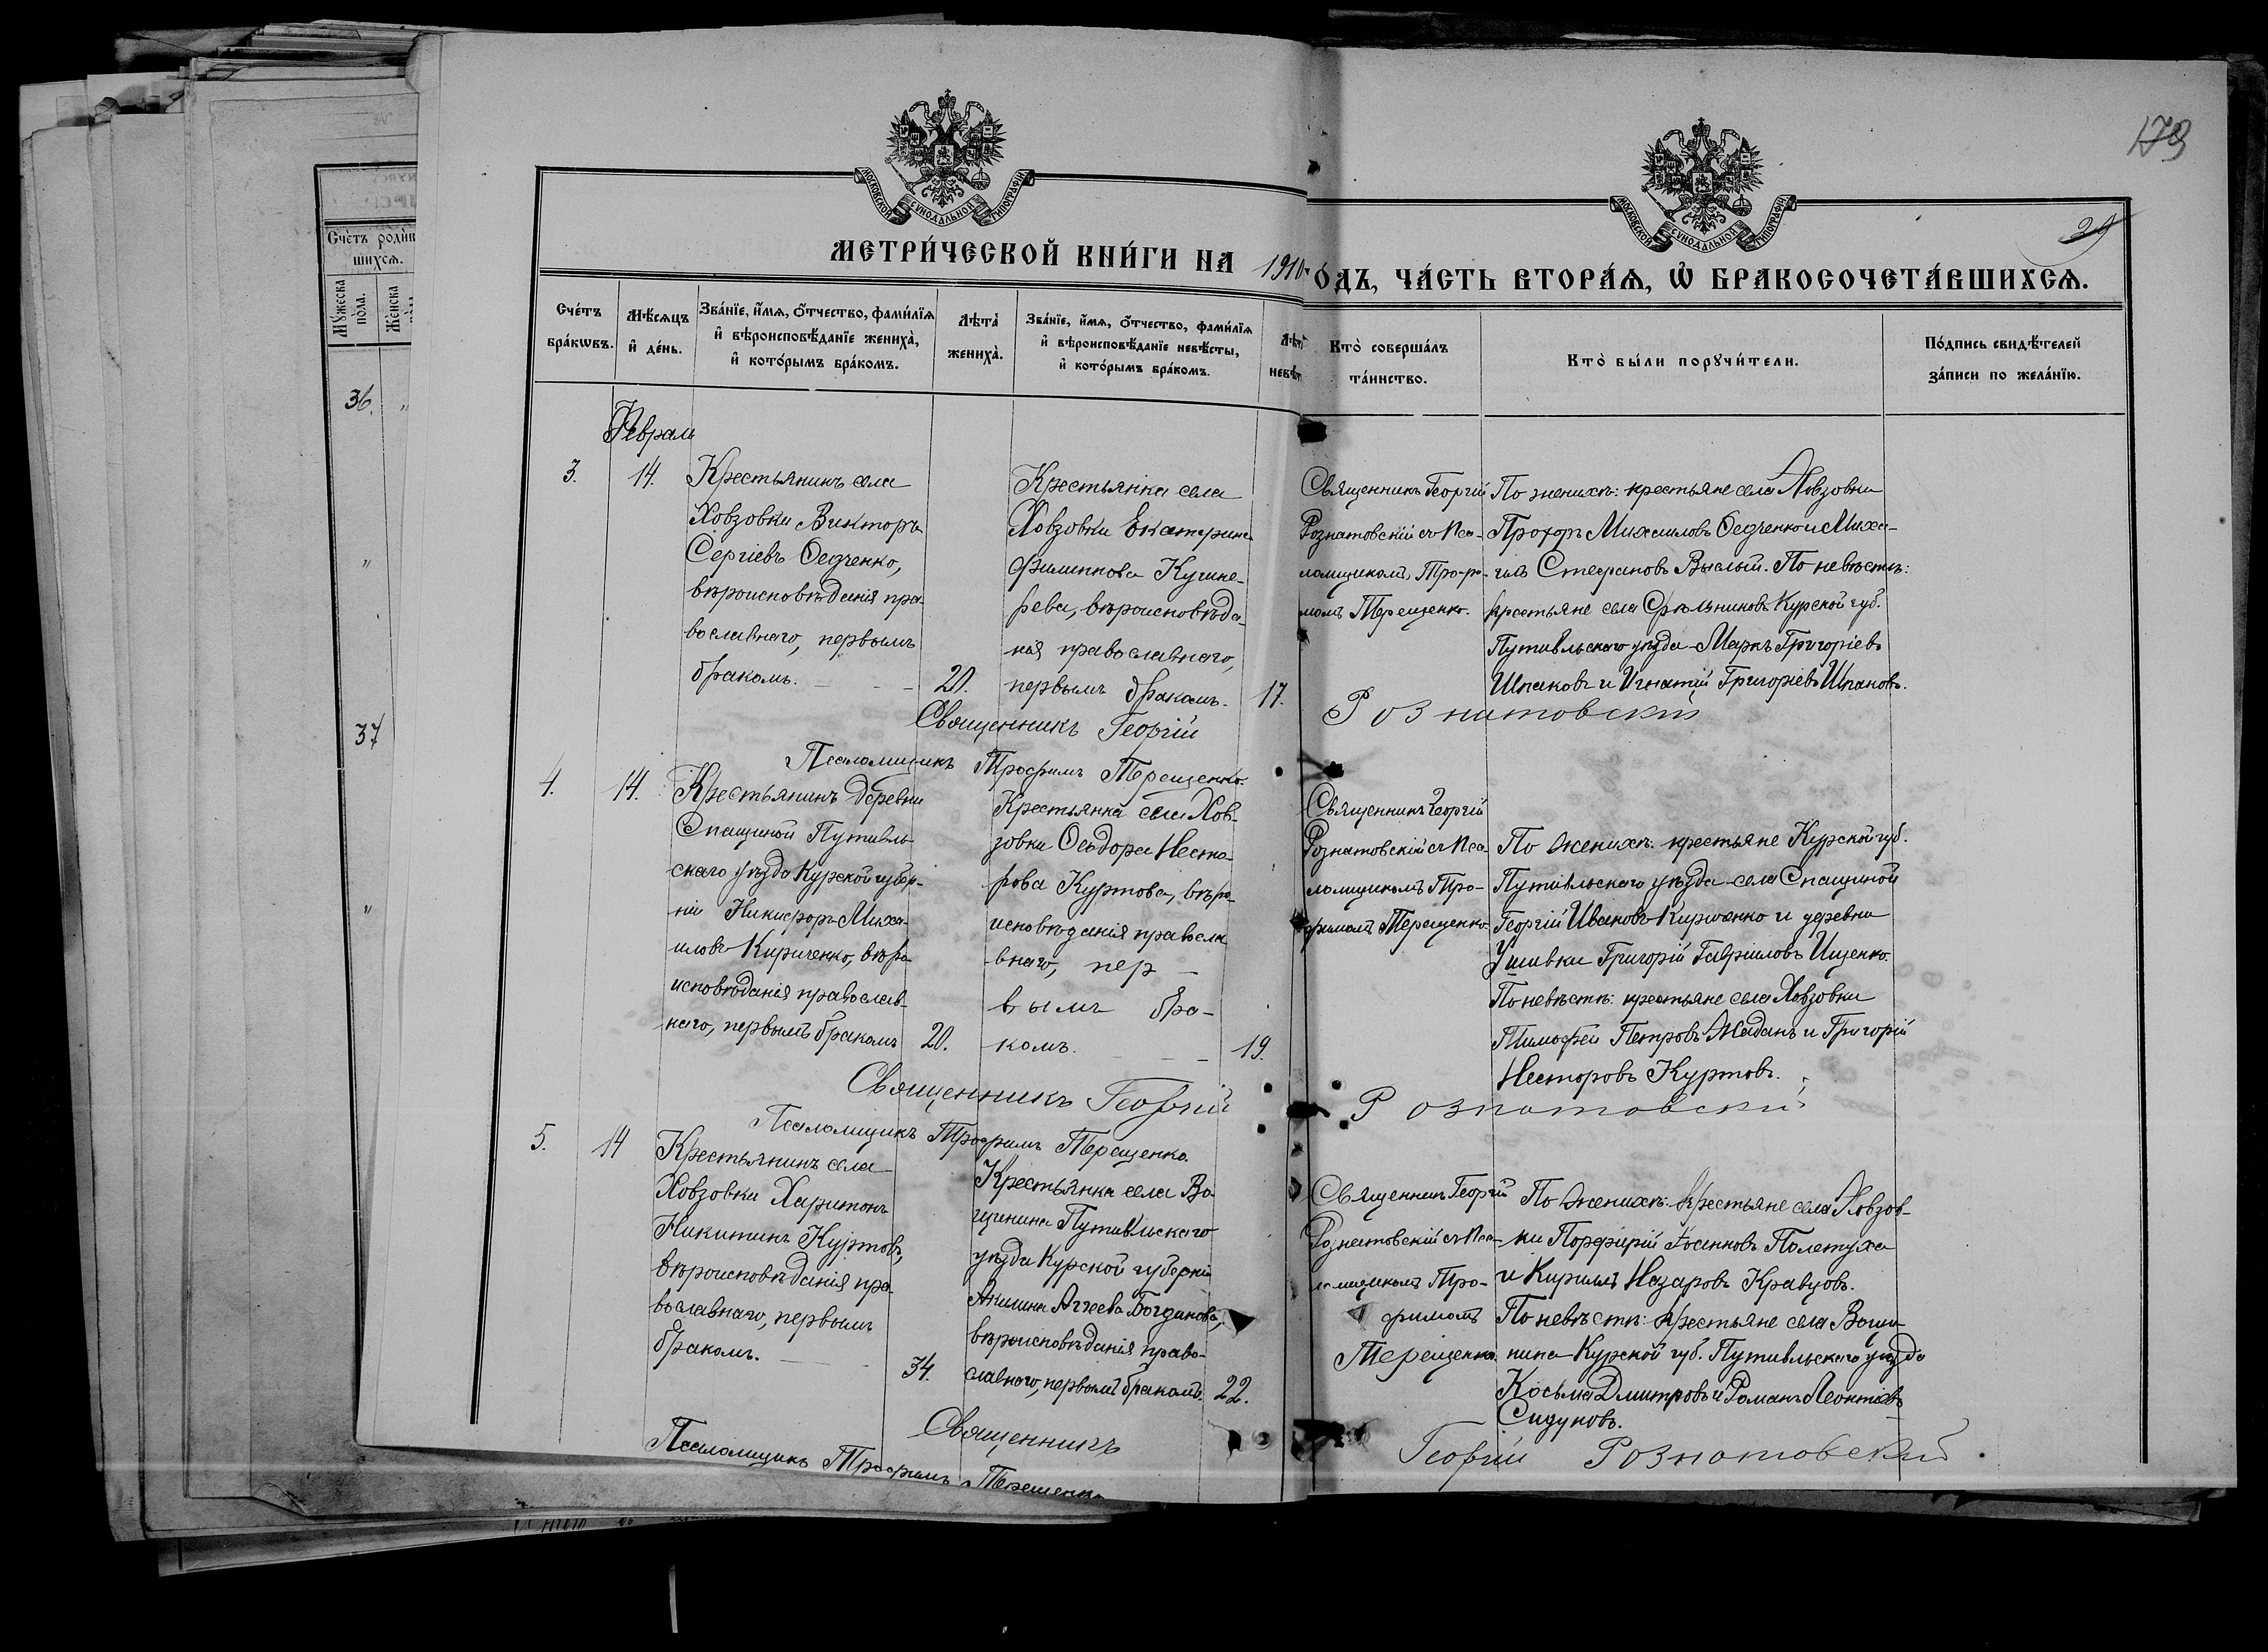 179
29
МОСКОВСКОЙ СѴНОДАЛЬНОЙ ТИПОГРАФІИ
МОСКОВСКОЙ СѴНОДАЛЬНОЙ ТИПОГРАФІИ
МЕТРИ́ЧЕСКОЙ КНИ́ГИ НА 1910
О́ДЪ, ЧА́СТЬ ВТОРА́Ѧ, Ѡ҆ БРАКОСОЧЕТА́ВШИХСѦ.
Счетъ родив
шихсѧ.
Мꙋжеска пола.
Женска
36.
"
"
37
"
Сче́тъ бра́кѡвъ.
Мѣ́сѧцъ и҆ де́нь.
Зва́нїе, и҆́мѧ, ѻ҆́тчество, фами́лїѧ
и҆ вѣроисповѣ́данїе жениха̀,
и҆ кото́рымъ бра́комъ.
Лѣта̀ жениха̀.
Зва́нїе, и҆́мѧ, ѻ҆́тчество, фами́лїѧ
и҆ вѣроисповѣ́данїе невѣ́сты,
и҆ кото́рымъ бра́комъ.
Лѣт
невѣ́ст
Кто̀ соверша́лъ
та́инство.
Кто̀ бы́ли порꙋчи́тели.
По́дпись свидѣ́телей
за́писи по жела́нїю.
Февраль
3.
14.
Крестьянинъ села
Ховзовки Викторъ
Сергіевъ Федченко,
вѣроисповѣданія пра-
вославнаго, первымъ
бракомъ.
20.
Крестьянка села
Ховзовки Екатерина
Филиппова Кугине-
рева, вѣроисповѣда-
нія православнаго,
первымъ бракомъ.
17.
Священникъ Георгій
Рознатовскій съ Пса-
ломщикомъ Тро-
Терещенко.
По женихѣ: крестьяне села Ховзовки
Прохоръ Михаиловъ Федченко и Миха-
илъ Стефановъ По невѣстѣ:
крестьяне села Курской губ.
Путивльскаго уѣзда Маркъ Григоріевъ
Шпаковъ и Игнатій Григоріевъ Шпаковъ.
Священникъ Георгій Рознатовскій
Псаломщикъ Трофимъ Терещенко.
4.
14.
Крестьянинъ деревни
Спащиной Путивль-
скаго уѣзда Курской губер-
ніи Никифоръ Миха-
иловъ Кириченко, вѣро-
исповѣданія православ-
наго, первымъ бракомъ
20.
Крестьянка села Хов-
зовки Ѳеодора Несто-
рова Куртова, вѣро-
исповѣданія правосла-
внаго, пер-
вымъ бра-
комъ.
19.
Священникъ Георгій
Рознатовскій съ Пса-
ломщикомъ Тро-
фимомъ Терещенко.
По женихѣ: крестьяне Курской губ.
Путивльскаго уѣзда села Спащиной
Георгій Ивановъ Кириченко и деревни
Григорій Гавриловъ Ищенко.
По невѣстѣ: крестьяне села Ховзовки
Тимофей Петровъ Жаданъ и Григорій
Несторовъ Куртовъ.
Священникъ Георгій Рознатовскій
Псаломщикъ Трофимъ Терещенко.
5.
14
Крестьянинъ села
Ховзовки Харитонъ
Никитинъ Куртовъ,
вѣроисповѣданія пра-
вославнаго, первымъ
бракомъ.
34.
Крестьянка села Во-
щинина Путивльскаго
уѣзда Курской губерніи
Акилина Аггеева Богданова,
вѣроисповѣданія право-
славнаго, первымъ бракомъ.
22.
Священникъ Георгій
Рознатовскій съ Пса-
ломщикомъ Тро-
фимомъ
Терещенко.
По женихѣ: крестьяне села Ховзов-
ки Порфирій Полетуха
и Кириллъ Назаровъ Кравцовъ.
По невѣстѣ: крестьяне села Вощи-
нина Курской губ. Путивльскаго уѣзда
Косьма Дмитровъ и Романъ Леонтіевъ
Сидуновъ.
Священникъ Георгій Рознатовскій
Псаломщикъ Трофимъ Терещенко